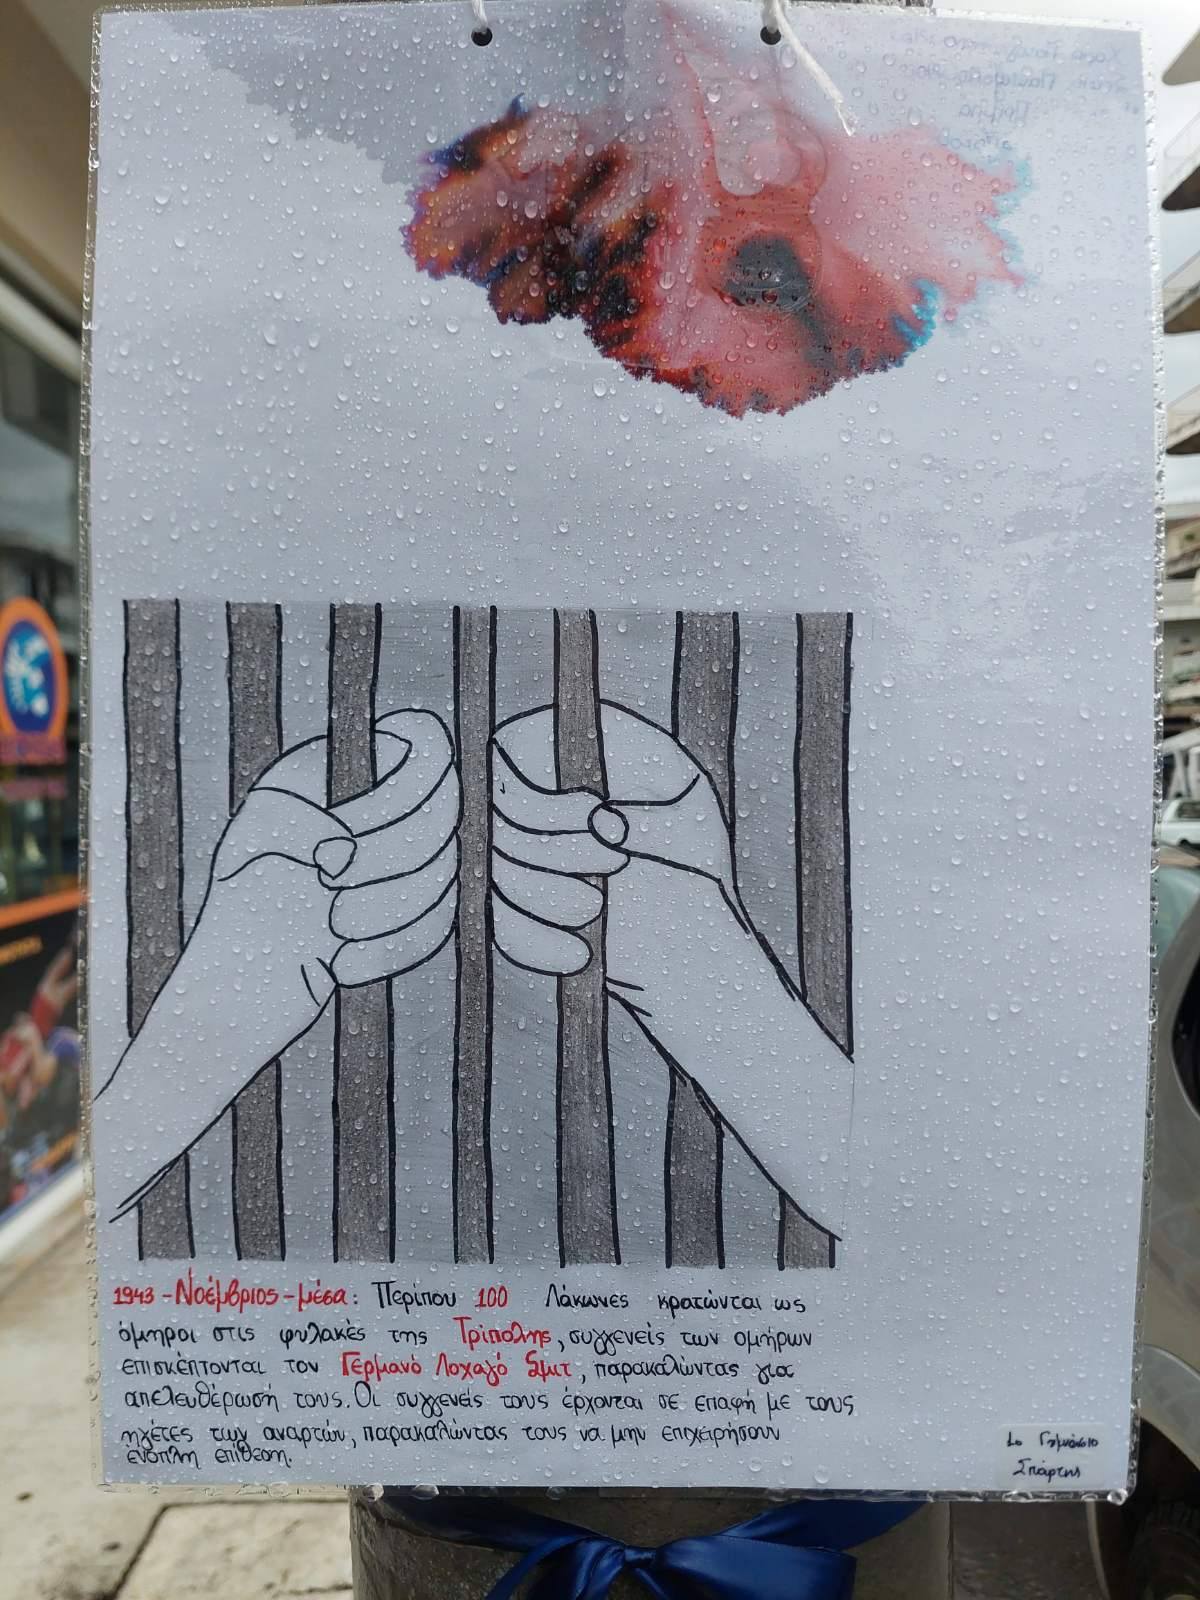 1943 - Νοέμβριος - μέσα: Περίπου 100 Λάκωνες κρατώνται ως
όμηροι στις φυλακές της Τρίπολης, συγγενείς των ομήρων
επισκέπτονται τον Γερμανό Λοχαγό Σμιτ, παρακαλώντας για
απελευθέρωσή τους. Οι συγγενείς τους έρχονται σε επαφή με τους
ηγέτες των ανταρτών, παρακαλώντας τους να μην επιχειρήσουν
ένοπλη επίθεση.
1ο Γυμνάσιο
Σπάρτης